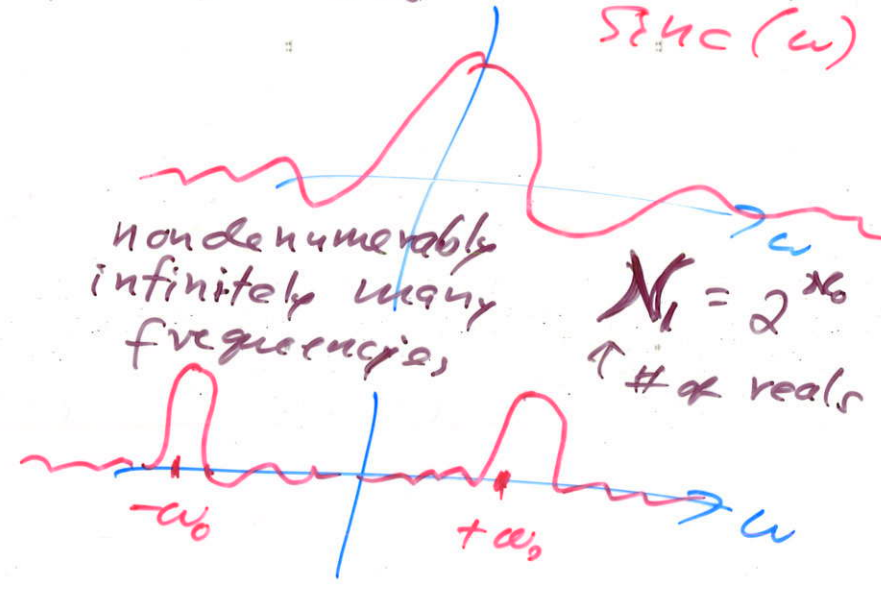 sinc(ω)
ω
nondenumerably
infinitely many
frequencies
ℵ₁ = 2^ℵ₀
↑ # of reals
-ω₀
+ω₀
ω